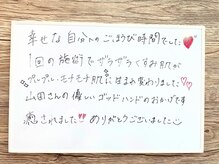 幸せな自分へのごほうび時間でした
1回の施術でザラザラくすみ肌が
プルプル、モチモチ肌に生まれ変わりました
山田さんの優しいゴッドハンドのおかげです
癒されました ありがとうございました